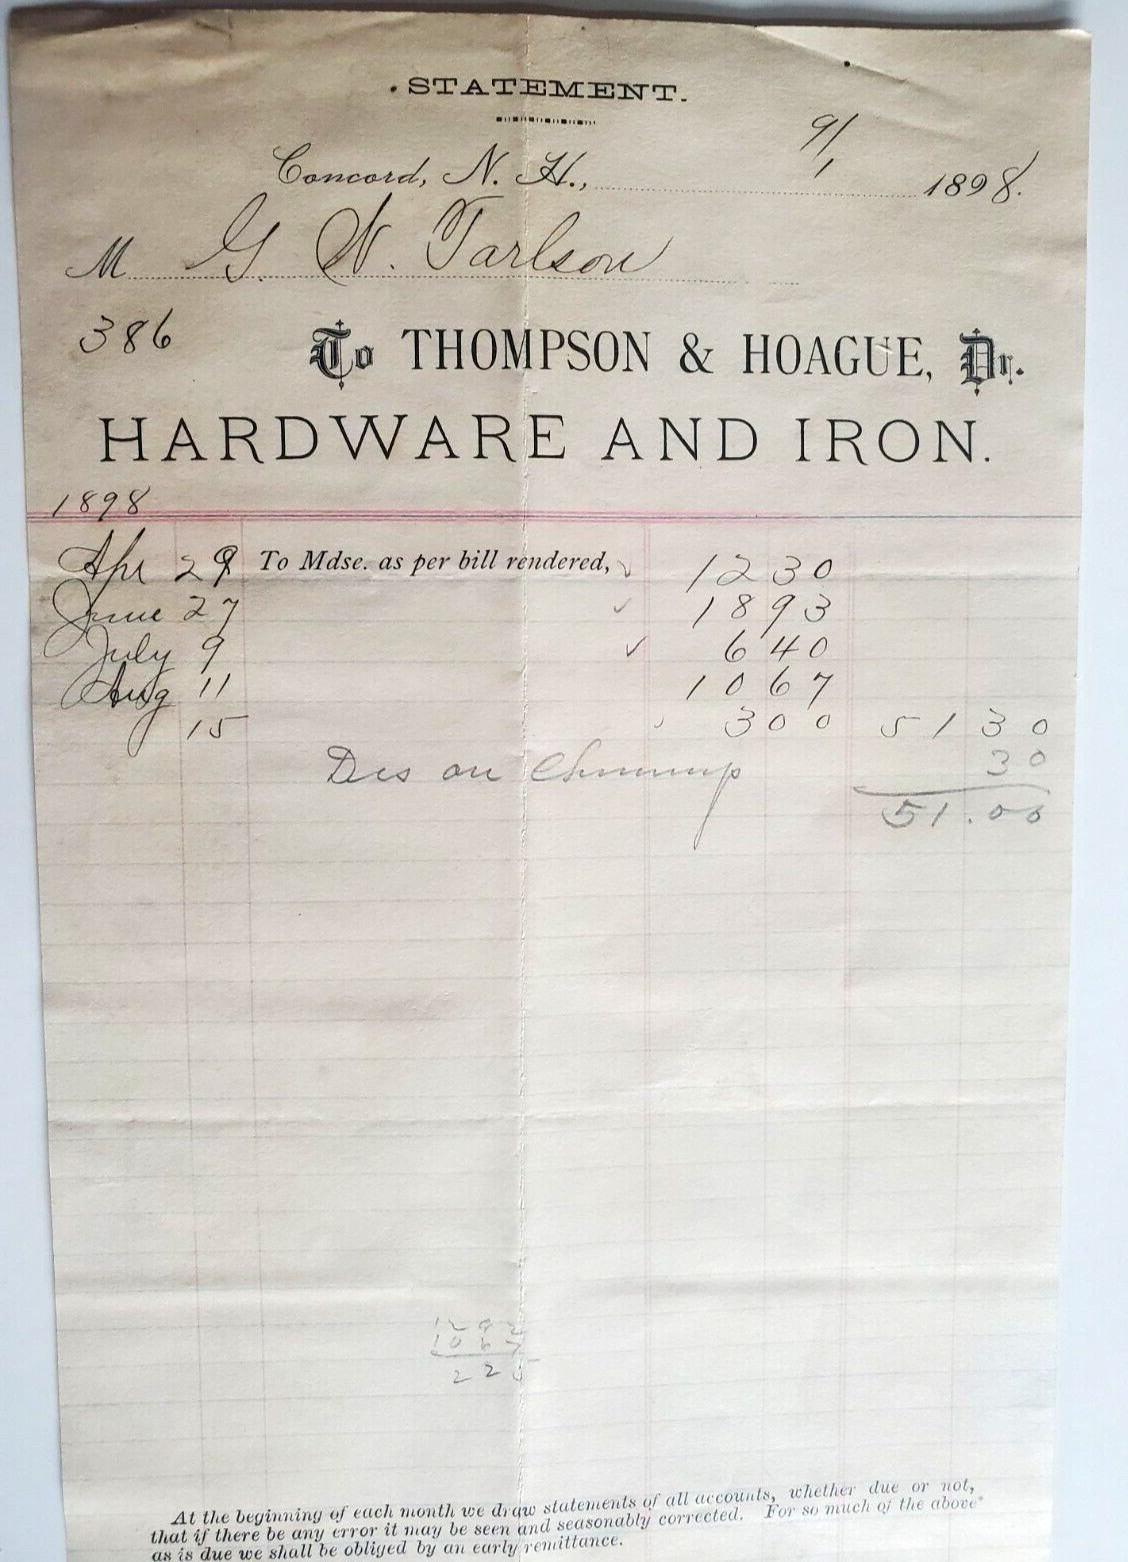 STATEMENT.
Concord, N. H., 9/1 1898.
M G. N. Tarlson
386
To THOMPSON & HOAGUE, Dr.
HARDWARE AND IRON.
1898
Apr 29 To Mdse. as per bill rendered, ✓ 12 30
June 27 ✓ 18 93
July 9 ✓ 6 40
Aug 11 10 67
15 3 00 51 30
Dis on 30
51.00
10 67
2 2
At the beginning of each month we draw statements of all accounts, whether due or not,
that if there be any error it may be seen and seasonably corrected. For so much of the above
as is due we shall be obliged by an early remittance.